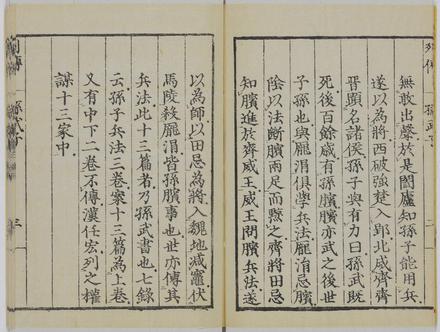 無敢出聲於是闔廬知孫子能用兵
遂以為將西破強楚入郢北威齊齊
晉顯名諸侯孫子與有力曰孫武既
死後百餘歲有孫臏臏亦武之後世
子孫也與龐涓俱學兵法龐涓忌臏
陰以法斷臏兩足而黥之齊將田忌
知臏進於齊威王威王問臏兵法遂
以為師以田忌為將入魏地減竈伏
馬陵殺龐涓皆孫臏事也世亦傳其
兵法此十三篇者乃孫武書也七錄
云孫子兵法三卷案十三篇為上卷
又有中下二卷不傳漢任宏列之權
謀十三家中